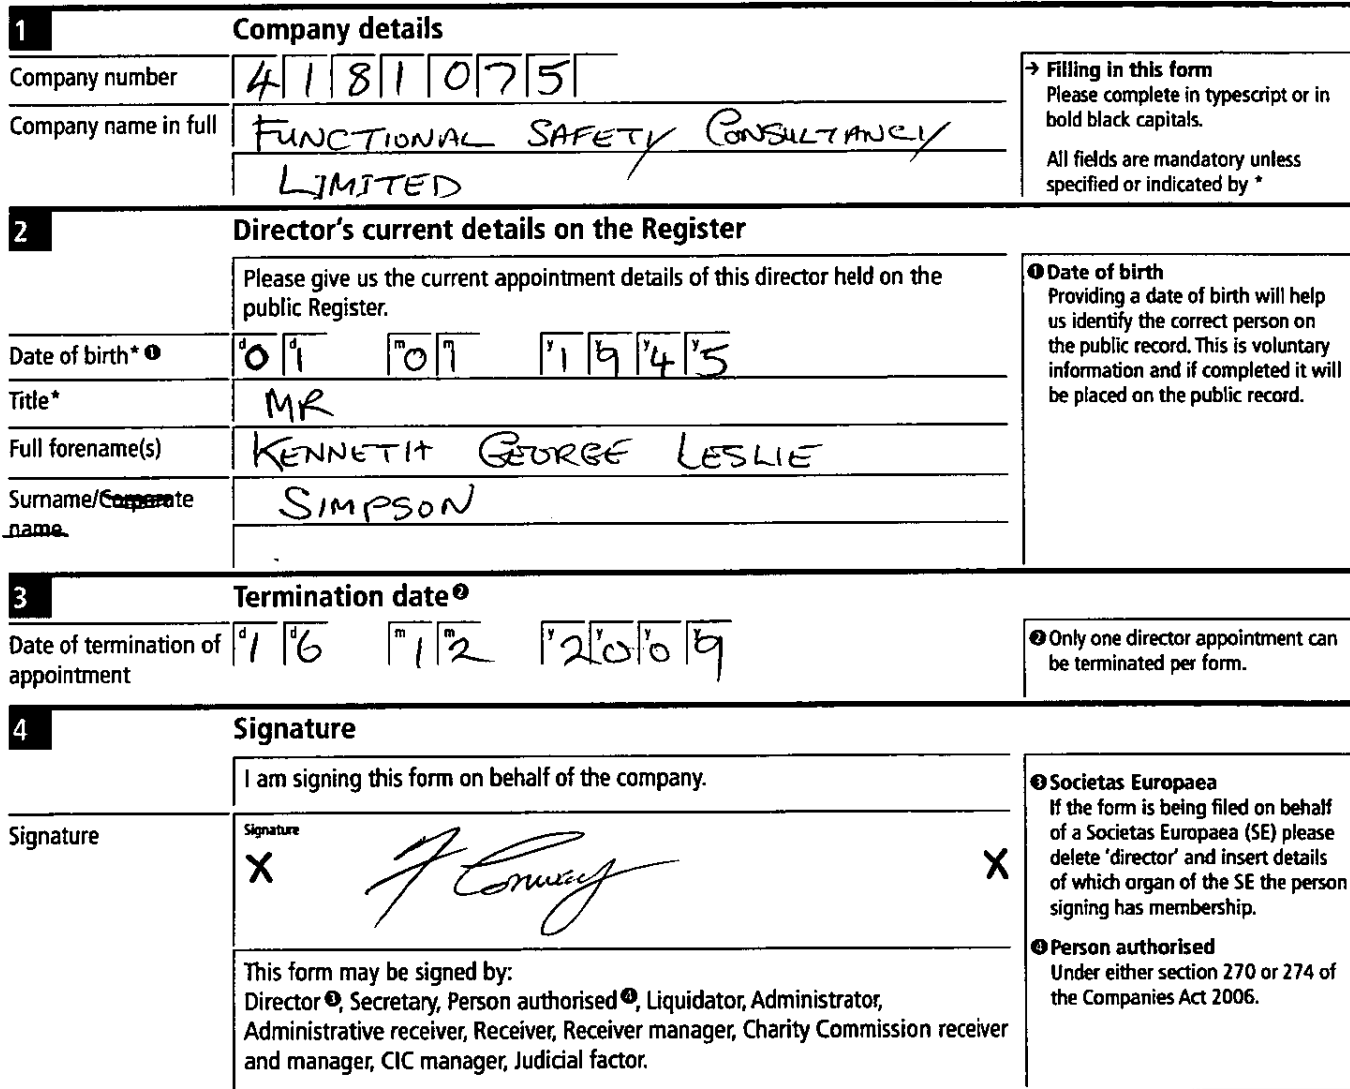 1 Company details
Company number 4181075
Company name in full FUNCTIONAL SAFETY CONSULTANCY
LIMITED
→ Filling in this form
Please complete in typescript or in
bold black capitals.
All fields are mandatory unless
specified or indicated by *
2 Director's current details on the Register
Please give us the current appointment details of this director held on the
public Register.
Date of birth* ❶ d0 d1 m0 m1 y1 y9 y4 y5
Title* MR
Full forename(s) KENNETH GEORGE LESLIE
Surname/Corporate SIMPSON
name
❶ Date of birth
Providing a date of birth will help
us identify the correct person on
the public record. This is voluntary
information and if completed it will
be placed on the public record.
3 Termination date❷
Date of termination of d1 d6 m1 m2 y2 y0 y0 y9
appointment
❷ Only one director appointment can
be terminated per form.
4 Signature
I am signing this form on behalf of the company.
Signature
Signature
X F Conway X
This form may be signed by:
Director ❸, Secretary, Person authorised ❹, Liquidator, Administrator,
Administrative receiver, Receiver, Receiver manager, Charity Commission receiver
and manager, CIC manager, Judicial factor.
❸ Societas Europaea
If the form is being filed on behalf
of a Societas Europaea (SE) please
delete 'director' and insert details
of which organ of the SE the person
signing has membership.
❹ Person authorised
Under either section 270 or 274 of
the Companies Act 2006.